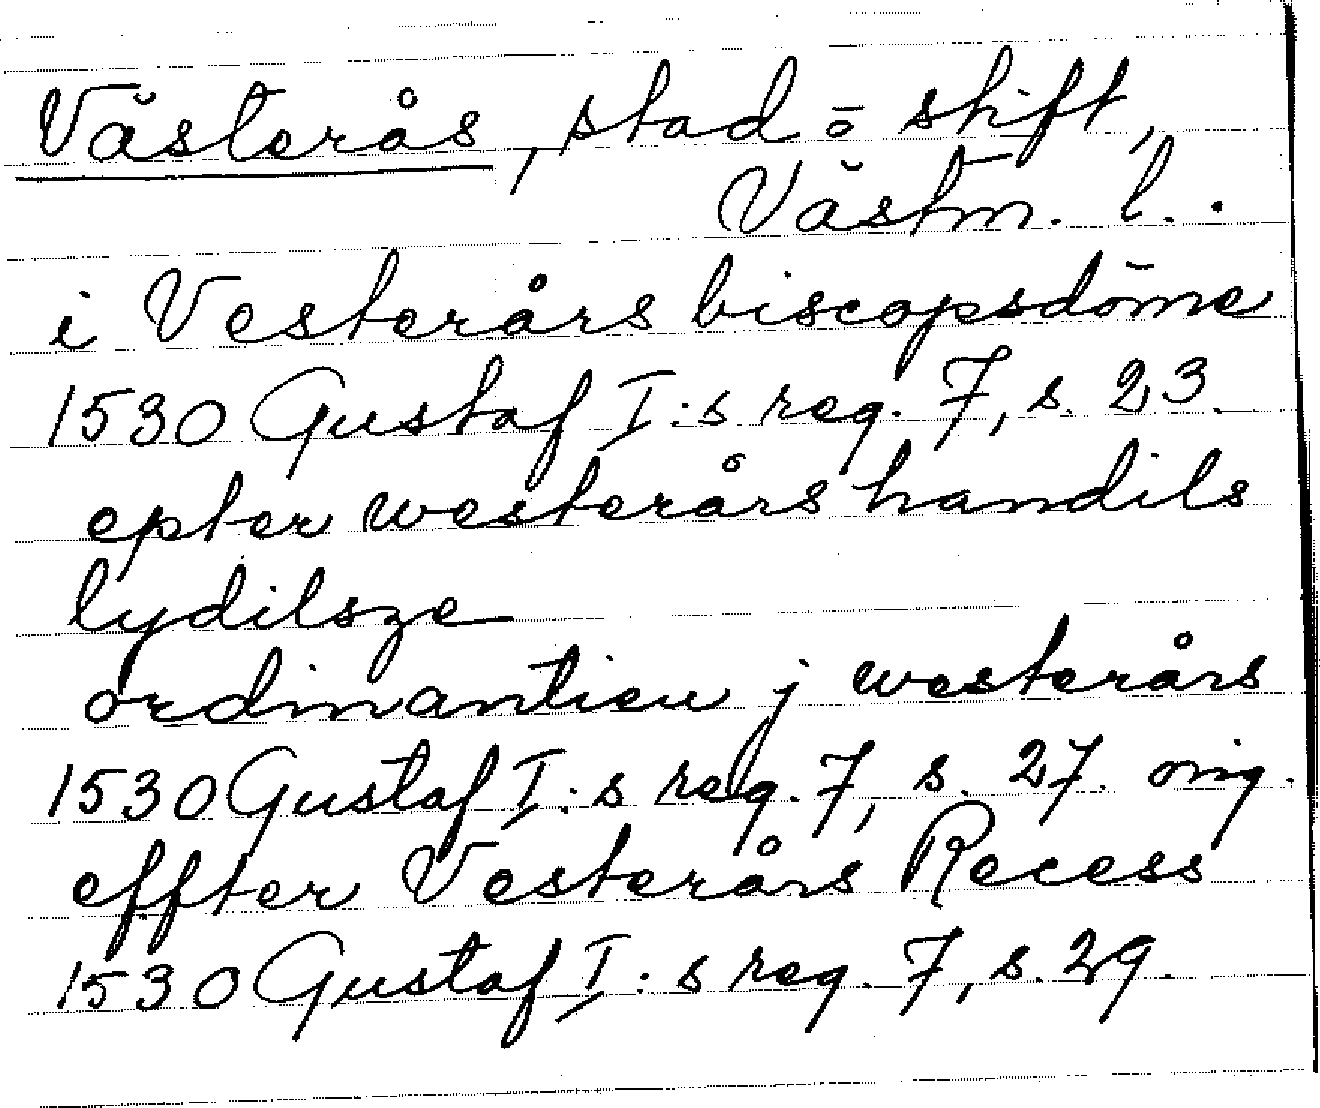 Västerås, stad o stift,
Västm. l.
i Vesterårs biscopsdöme
1530 Gustaf I:s reg. 7, s. 23.
epter westerårs handils
lydilsze
ordinantien j westerårs
1530 Gustaf I:s reg. 7, s. 27. orig.
effter Vesterårs Recess
1530 Gustaf I:s reg. 7, s. 29.